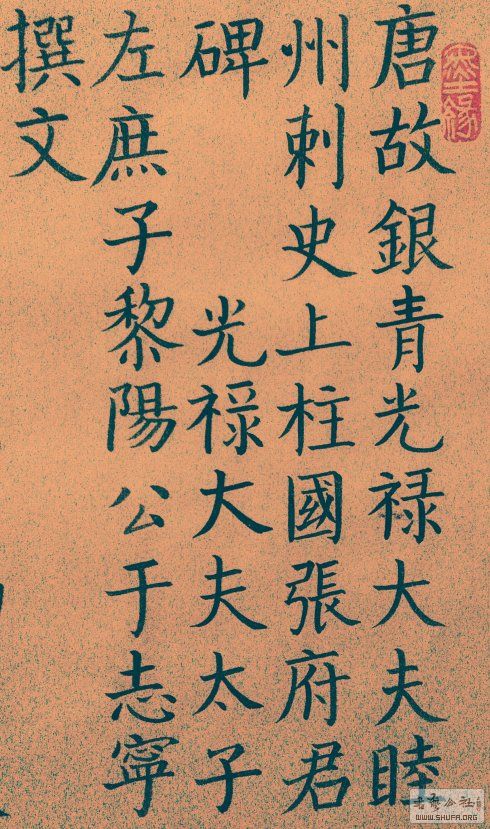 唐故銀青光禄大夫睦
州刺史上柱國張府君
碑　光禄大夫太子
左庶子黎陽公于志寧
撰文
WWW.SHUFA.ORG